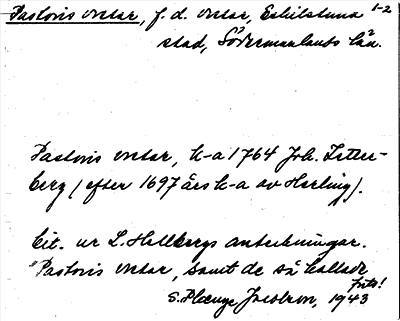 Pastoris vretar, f.d. vretar, Eskilstuna 1-2
stad, Södermanlands län.
Pastoris vretar, k-a 1764 Joh. Zetter-
berg (efter 1697 års k-a av Herling).
Cit. ur L. Hellbergs anteckningar.
"Pastoris vretar, samt de så kallade
frits!
S. Jacobson, 1943